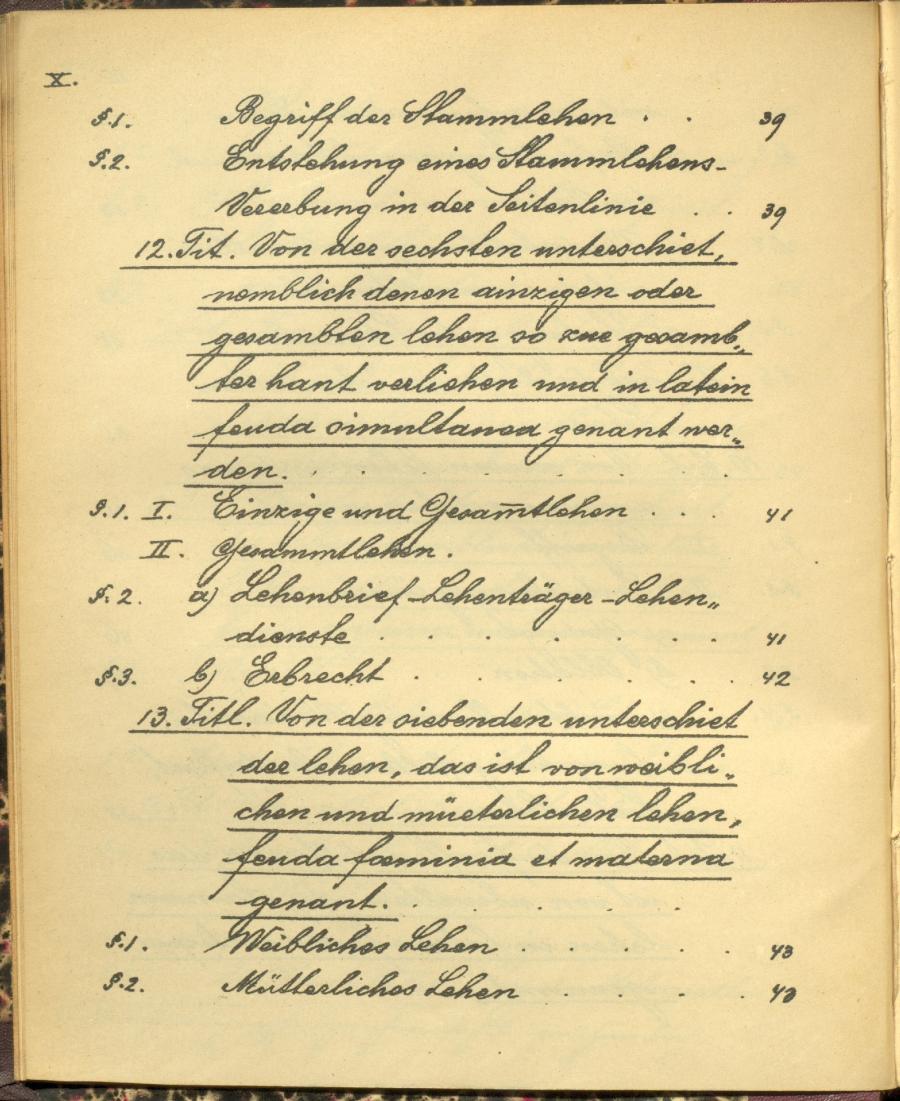 X.
§.1. Begriff der Stammlehen . . 39
§.2. Entstehung eines Stammlehens-
Vererbung in der Seitenlinie . . 39
12. Tit. Von der sechsten unterschiet,
nemblich denen ainzigen oder
gesambten lehen so zue gesamb„
ter hant verliehen und in latein
feuda simultanea genant wer„
den. . . . . . . .
§.1. I. Einzige und Gesam̅tlehen . . . 41
II. Gesammtlehen.
§.2. a) Lehenbrief-Lehenträger-Lehen„
dienste . . . . . . . 41
§.3. b) Erbrecht . . . . . . . 42
13. Titl. Von der siebenden unterschiet
der lehen, das ist von weibli„
chen und müeterlichen lehen,
feuda fœminia et materna
genant. . . . . .
§.1. Weibliches Lehen . . . . . 43
§.2. Mütterliches Lehen . . . . 43